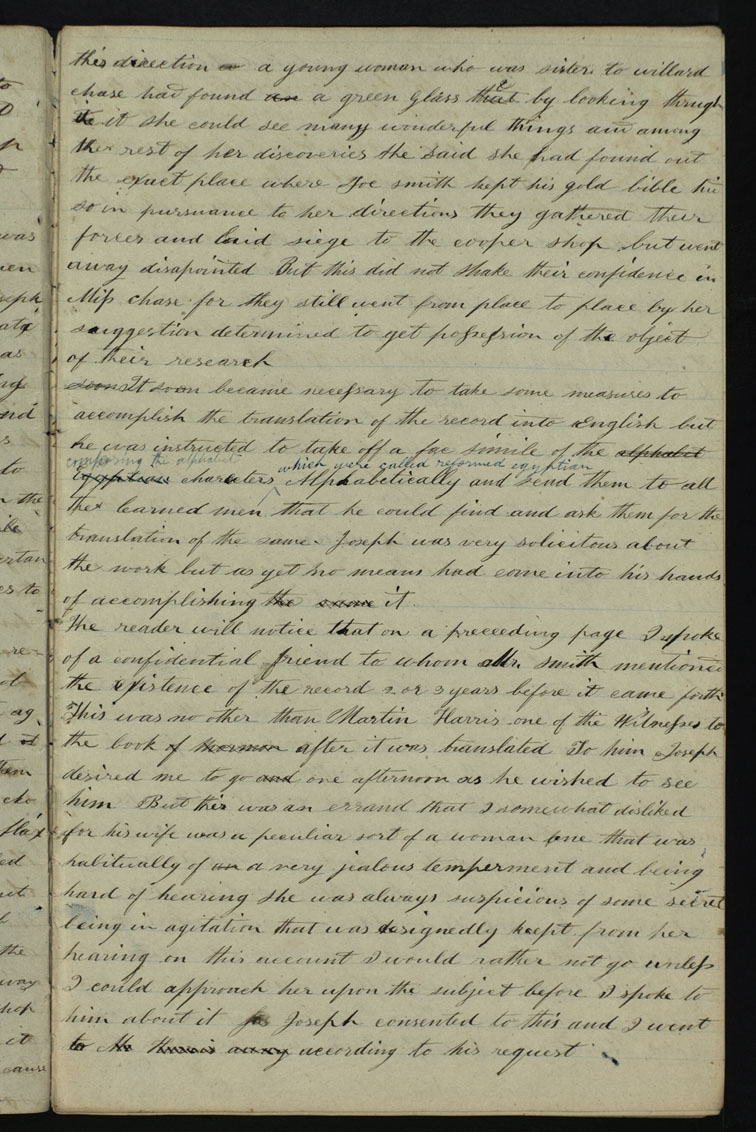 this direction a young woman who was sister to willard
chase had found an a green glass that by looking thrugh
it she could see many wonderful things and among
the rest of her discoveries she said she had found out
the exact place where Joe smith kept his gold bible
so in pursuance to her directions they gathered their
forces and laid siege to the cooper shop but went
away disapointed But this did not shake their confidence in
Miss chase for they still went from place to place by her
suggestion determined to get possession of the object
of their research
soon It soon became necessary to take some measures to
accomplish the translation of the record into English but
he was instructed to take off a fac simile of the alphabet
composing the alphabet which were called reformed egyptian
egyptian characters Alphabetically and send them to all
the learned men that he could find and ask them for the
translation of the same. Joseph was very solicitous about
the work but as yet no means had come into his hands
of accomplishing the same it.
The reader will notice that on a preceeding page I spoke
of a confidential friend to whom Mr. smith mentioned
the existence of the record 2 or 3 years before it came forth
This was no other than Martin Harris one of the Witnesses to
the book of mormon after it was translated To him Joseph
desired me to go and one afternoon as he wished to see
him But this was an errand that I somewhat disliked
for his wife was a peculiar sort of a woman one that was
habitually of an a very jealous temperment and being
hard of hearing she was always suspicious of some secret
being in agitation that was designedly kept from her
hearing on this account I would rather not go unless
I could approach her upon the subject before I spoke to
him about it Joseph consented to this and I went
to Mr Harris away according to his request